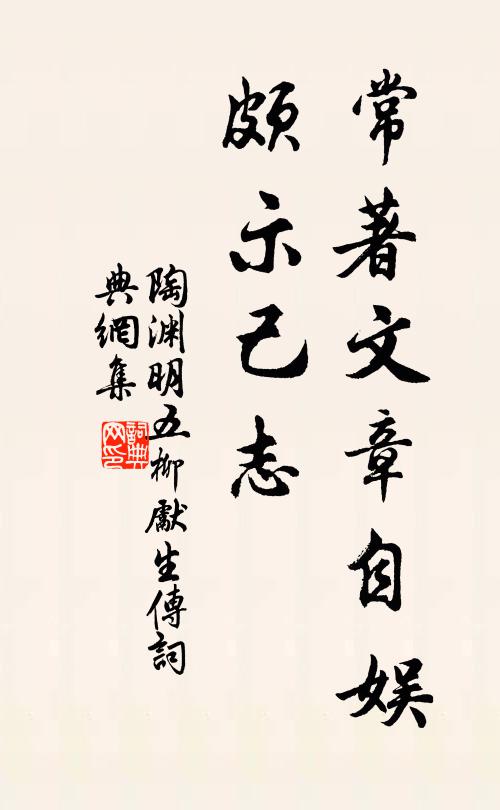 常著文章自娱
頗示己志
陶渊明五柳獻生傳詞
典網集
詞典
网印